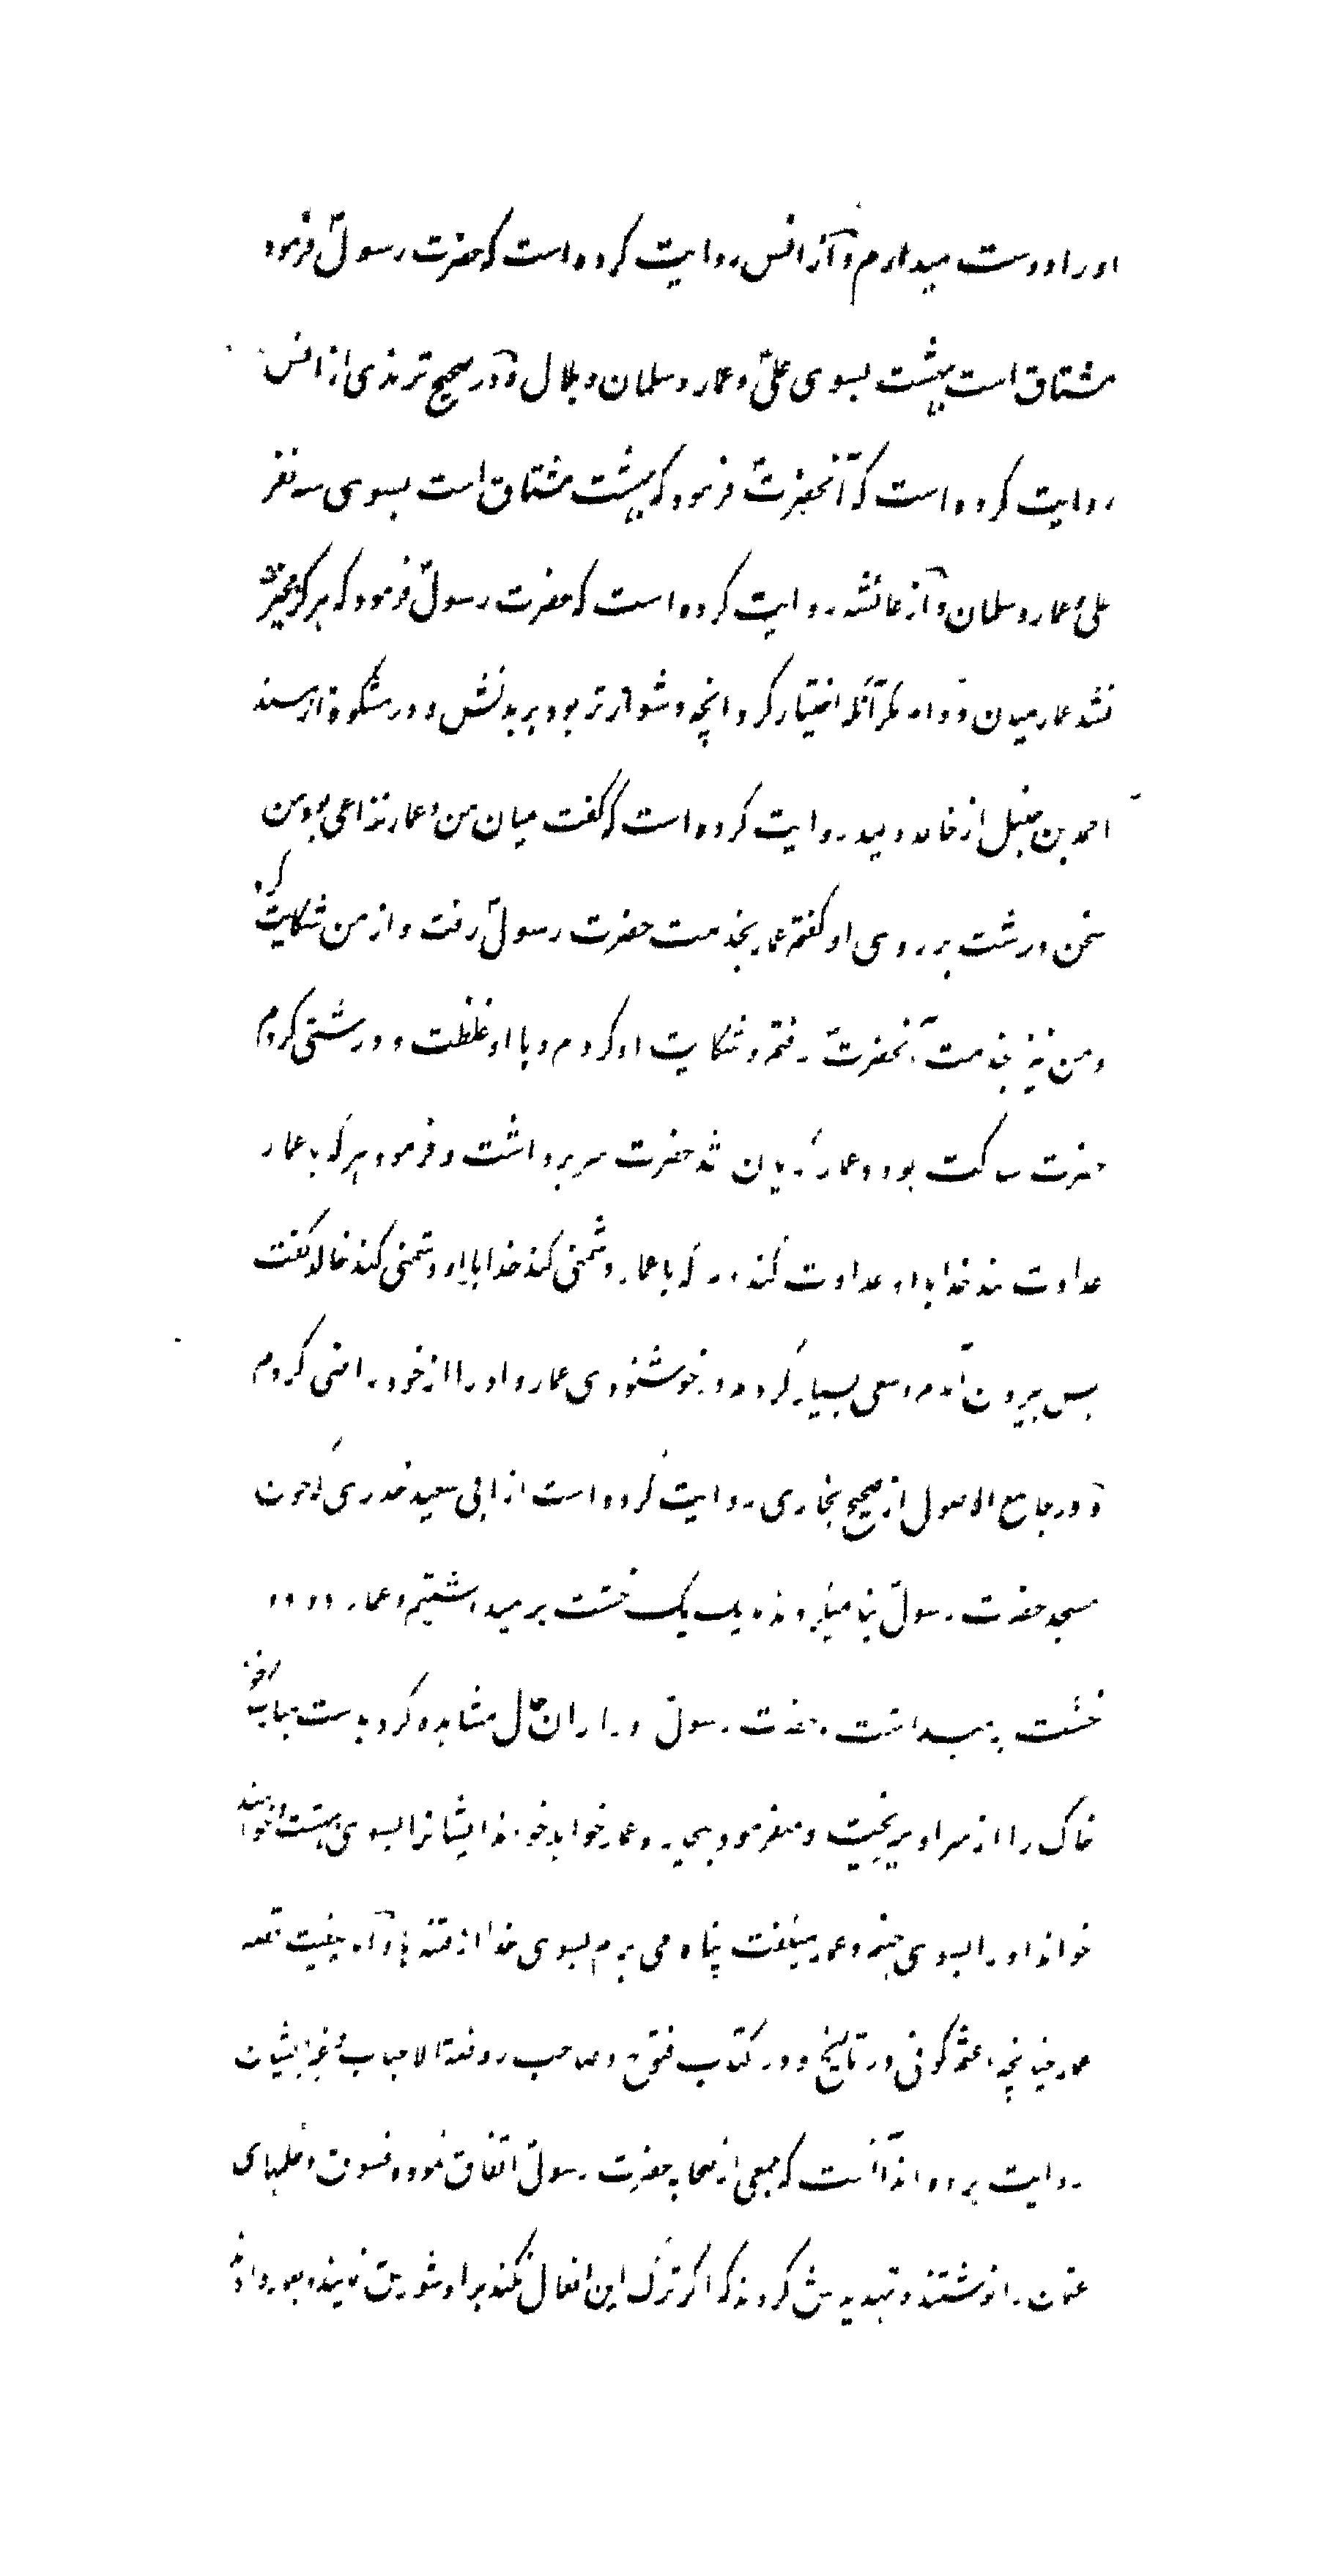 او را دوست میدارم و از انس روایت کرده است که حضرت رسول فرمود
مشتاق است بهشت بسوی علی و عمار و سلمان و بلال و در صحیح ترمذی از انس
روایت کرده است که آنحضرت فرمود که بهشت مشتاق است بسوی سه نفر
علی و عمار و سلمان و از عائشه روایت کرده است که حضرت رسول فرمود که هرکز مخیر
نشد عمار میان دو امر مکر آنکه اختیار کرد آنچه دشوارتر بود بر بدنش و در مشکوة از مسند
احمد بن حنبل از خالد ولید روایت کرده است که کفت میان من و عمار نزاعی بود من
سخن درشت بر روی او کفتم عمار بخدمت حضرت رسول رفت و از من شکایت کرد
و من نیز بخدمت آنحضرت رفتم و شکایت او کردم و با او غلظت و درشتی کردم
حضرت ساکت بود و عمار کریان شد حضرت سر برداشت و فرمود هر که با عمار
عداوت کند خدا با او عداوت کند و هر که با عمار دشمنی کند خدا با او دشمنی کند خالد کفت
پس بیرون آمدم و سعی بسیار کردم در خوشنودی عمار و او را از خود راضی کردم
و در جامع الاصول از صحیح بخاری روایت کرده است از ابی سعید خدری که چون
مسجد حضرت رسول بنا میکردند ما یک یک خشت بر میداشتیم و عمار دو دو
خشت بر میداشت حضرت رسول او را در آن حال مشاهده کرد بدست مبارک خود
خاک را از سر او میریخت و میفرمود عمار خواهد خواند ایشانرا بسوی بهشت و خواهند
خواند او را بسوی جهنم و عمار میکفت پناه می برم بسوی خدا از فتنه ها و کیفیت قصه
عمار چنانچه اعثم کوفی در تاریخ و در کتاب فتوح و صاحب روضة الاحباب و غیر ایشان
روایت کرده اند آنست که جمعی از صحابه حضرت رسول اتفاق نموده فسوق و ظلمهای
عثمان را نوشتند و تهدیدش کردند که اکر ترک این افعال نکند بر او شورش نمایند